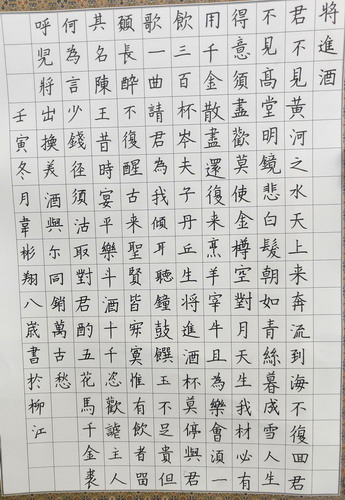 將進酒
君不見黃河之水天上来奔流到海不復囬君
不見髙堂明鏡悲白髮朝如青絲暮成雪人生
得意須盡歡莫使金樽空對月天生我材必有
用千金散盡還復来烹羊宰牛且為樂會須一
飲三百杯岑夫子丹丘生將進酒杯莫停與君
歌一曲請君為我傾耳聽鐘鼓饌玉不足貴但
願長醉不復醒古来聖賢皆寂寞惟有飲者留
其名陳王昔時宴平樂斗酒十千恣歡謔主人
何為言少錢徑須沽取對君酌五花馬千金裘
呼兒將出換美酒與尔同銷萬古愁
壬寅冬月韋彬翔八歲書於柳江